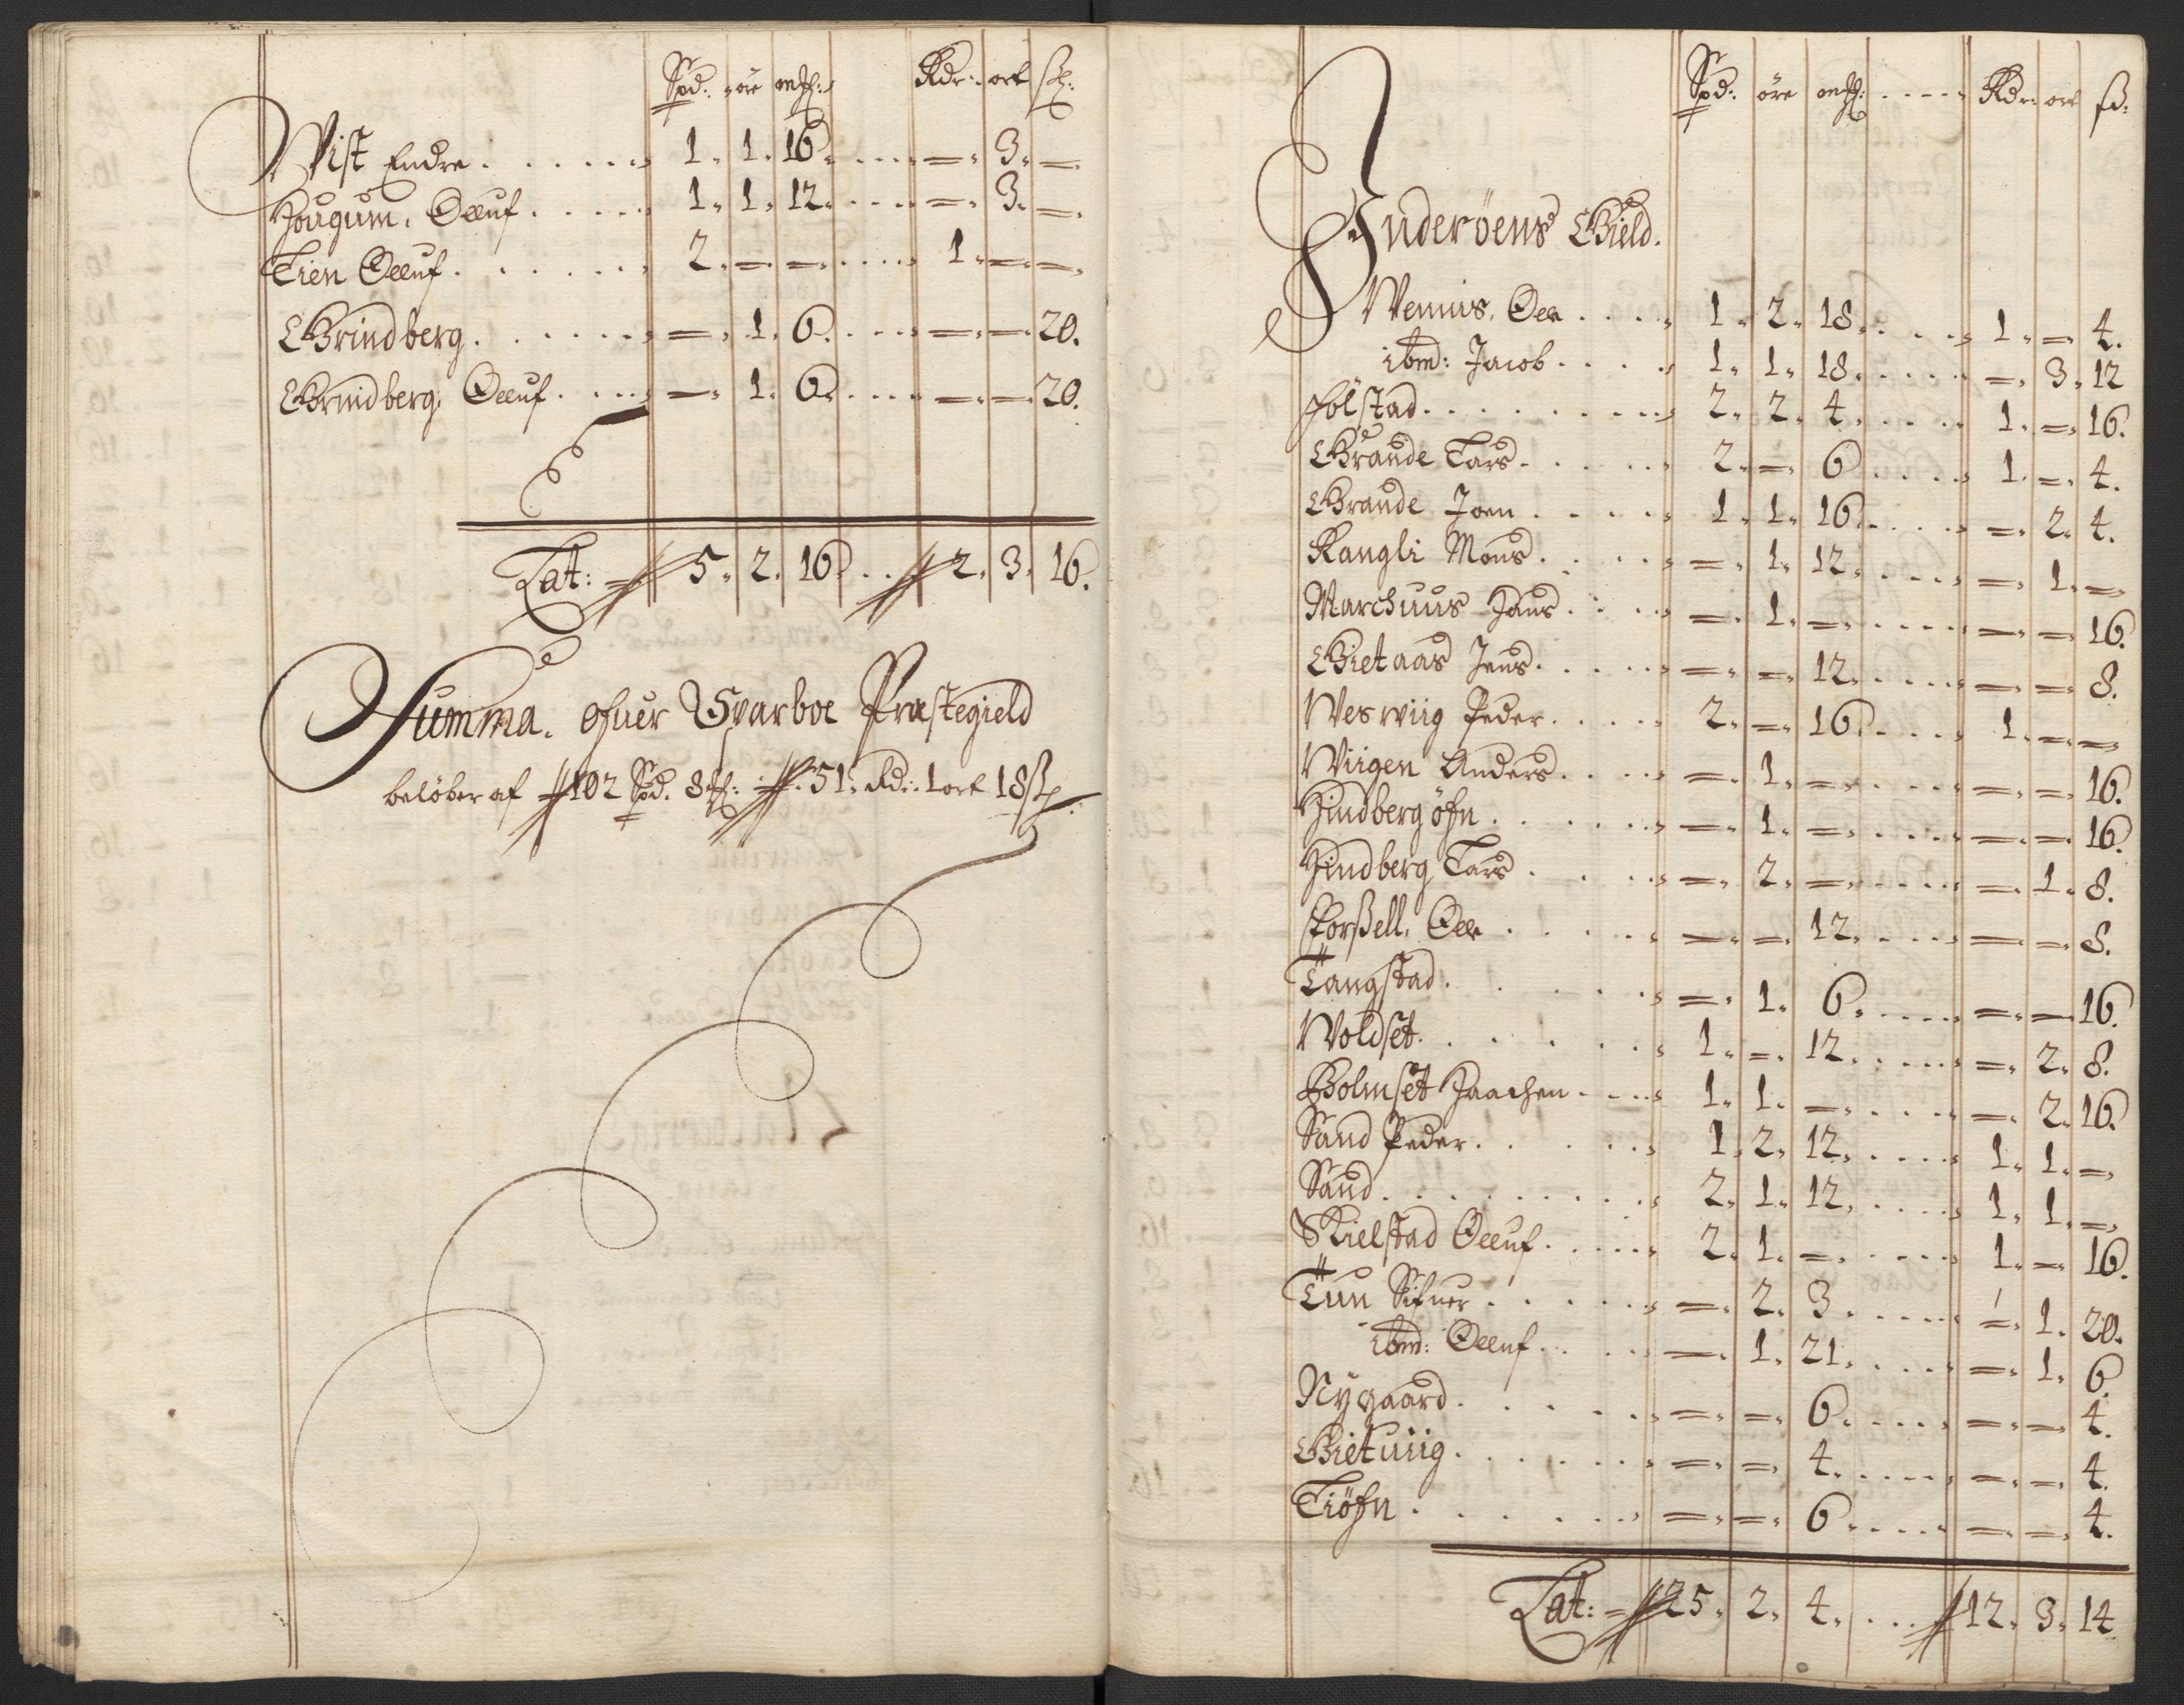 Spd: öre mk: Rdr: ort sk:
Wist Endre . . . . . . 1. 1. 16. . . . . =. 3. =
Hougum. Oeluf . . . . . 1. 1. 12. . . . . =. 3. =.
Tien Oeluf . . . . . . 2. =. =. . . . . 1. =. =.
Grindberg . . . . . . =. 1. 6. . . . . =. =. 20.
Grindberg. Oeluf . . . . =. 1. 6. . . . . =. =. 20.
Lat: 5. 2. 16. . . 2. 3. 16.
Summa. ofuer Sparboe Præstegield
beløber af 102 Spd. 8 mk: 51. Rd: 1 ort 18 sk
Spd: öre mk: . . . . Rdr: ort sk:
Inderöens Gield.
Wennis. Ole . . . . 1. 2. 18. . . . . 1. =. 4.
ibm: Jacob . . . . 1. 1. 18. . . . . =. 3. 12
Fölstad . . . . . . . . 2. 2. 4. . . . . 1. =. 16.
Grande Lars . . . . . 2. =. 6 . . . . 1. =. 4.
Grande Joen . . . . . 1. 1. 16. . . . . =. 2. 4.
Rangli Mons . . . . . =. 1. 12. . . . . =. 1. =
Marchuus Hans . . . . =. 1. =. . . . . =. =. 16.
Gietaas Jens . . . . . =. =. 12. . . . . =. =. 8.
Weswiig Peder . . . . . 2. =. 16. . . . . 1. =. =
Wiigen Anders . . . . =. 1. =. . . . . =. =. 16.
Hindberg öfn . . . . . . =. 1. =. . . . . =. =. 16.
Hindberg Lars . . . . =. 2. =. . . . . =. 1. 8.
Storßell. Ole . . . . . =. =. 12. . . . . =. =. 8.
Langstad . . . . . . =. 1. 6. . . . . =. =. 16.
Woldset . . . . . . 1. =. 12. . . . . =. 2. 8.
Bolmset Haachen . . . . 1. 1. =. . . . . =. 2. 16.
Sand Peder . . . . . 1. 2. 12. . . . . 1. 1. =
Sand . . . . . . . . . 2. 1. 12. . . . . 1. 1. =.
Skielstad Oeluf . . . . . 2. 1. =. . . . . 1. =. 16.
Tun Sifuer . . . . . =. 2. 3. . . . . =. 1. 20.
ibm: Oeluf . . . . . =. 1. 21. . . . . =. 1. 6.
Nygaard . . . . . . =. =. 6. . . . . =. =. 4.
Gietuiig . . . . . . =. =. 4. . . . . =. =. 4.
Tiöfn . . . . . . =. =. 6. . . . . =. =. 4.
Lat: 25. 2. 4. . . . 12. 3. 14